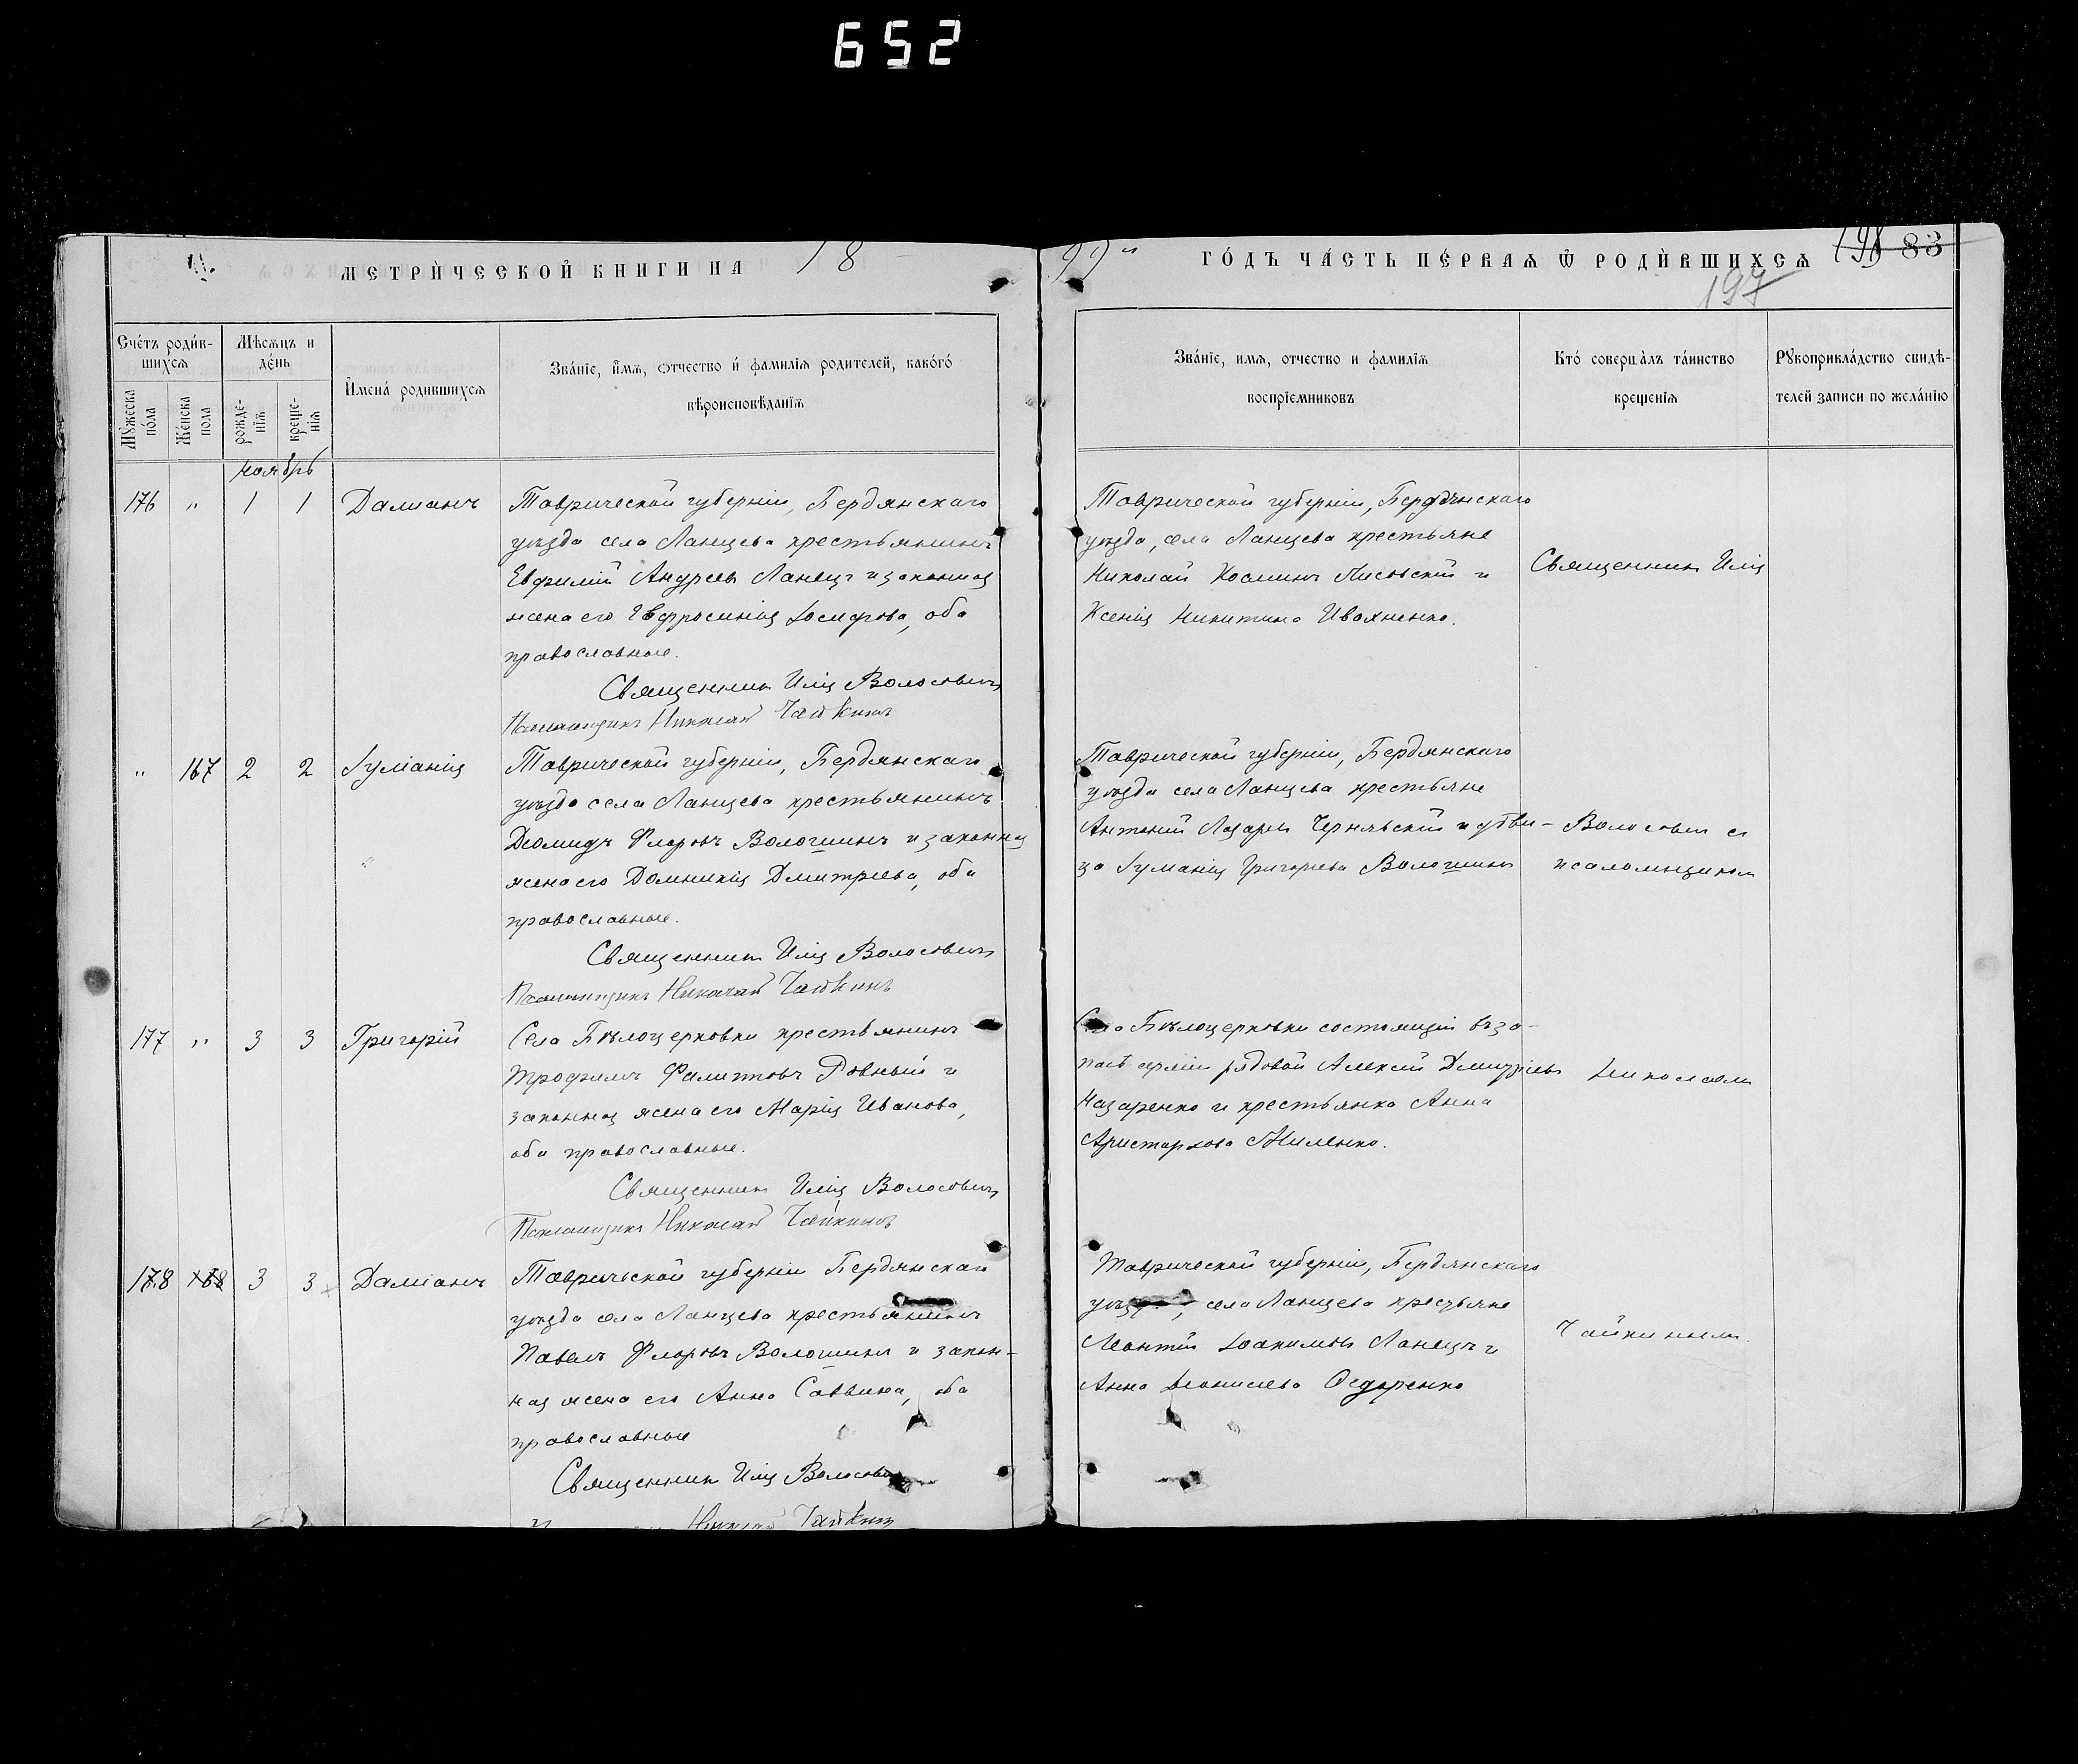 652
МЕТРИ́ЧЕСКОЙ КНИГИ НА 18
99 го́дъ ча́сть пе́рваѧ ѡ роди́вшихсѧ
83
197
Сче́тъ роди́в-
шихсѧ
Мѣсѧцъ и
де́нь
Мꙋжеска
по́ла
Же́нска
пола
рожде-
нїѧ
креще-
нїѧ
Имена́ родившихсѧ
Зва́нїе, имѧ, ѻтчество и́ фамилїѧ родителей, како́гѡ
вѣроисповѣданїѧ
Зва́нїе, имѧ, отчество и фамилїѧ
воспрїемниковъ
Кто́ соверша́лъ та́инство
крещенїѧ
Рꙋкоприкла́дство свидѣ-
телей записи по жела́нїю
ноябрь
176 " 1 1 Даміанъ
Таврической губерніи, Бердянскаго
уѣзда села Ланцева крестьянинъ
Евфимій Андреевъ Ланецъ и законная
жена его Евфросинія Іосифова, оба
православные.
Священникъ Илія Волосовичъ
Псаломщикъ Николай Чайкинъ
Таврической губерніи, Бердянскаго
уѣзда, села Ланцева крестьяне
Николай Косминъ Лисовскій и
Ксенія Никитина Ивахненко.
Священникъ Илія
" 167 2 2 Іуліанія
Таврической губерніи, Бердянскаго
уѣзда села Ланцева крестьянинъ
Діомидъ Флоровъ Волошинъ и законная
жена его Домникія Дмитріева, оба
православные.
Священникъ Илія Волосовичъ
Псаломщикъ Николай Чайкинъ
Таврической губерніи, Бердянскаго
уѣзда села Ланцева крестьяне
Антоній Лазаревъ Чернявскій и дѣви-
ца Іуліанія Григорьева Волошинъ
Волосовичъ съ
псаломщикомъ
177 " 3 3 Григорій
Села Бѣлоцерковки крестьянинъ
Трофимъ Филипповъ Ровный и
законная жена его Марія Иванова,
оба православные.
Священникъ Илія Волосовичъ
Псаломщикъ Николай Чайкинъ
Села Бѣлоцерковки состоящій въ за-
пасѣ арміи рядовой Алексій Дмитріевъ
Назаренко и крестьянка Анна
Аристархова Жиленко.
Николаемъ
178 168 3 3 Даміанъ
Таврической губерніи Бердянскаго
уѣзда села Ланцева крестьянинъ
Павелъ Флоровъ Волошинъ и закон-
ная жена его Анна Саввина, оба
православные
Священникъ Илія Волосовичъ
Николай Чайкинъ
Таврической губерніи, Бердянскаго
уѣзда, села Ланцева крестьяне
Леонтій Іоакимовъ Ланецъ и
Анна Діонисіева Федоренко
Чайкинымъ.